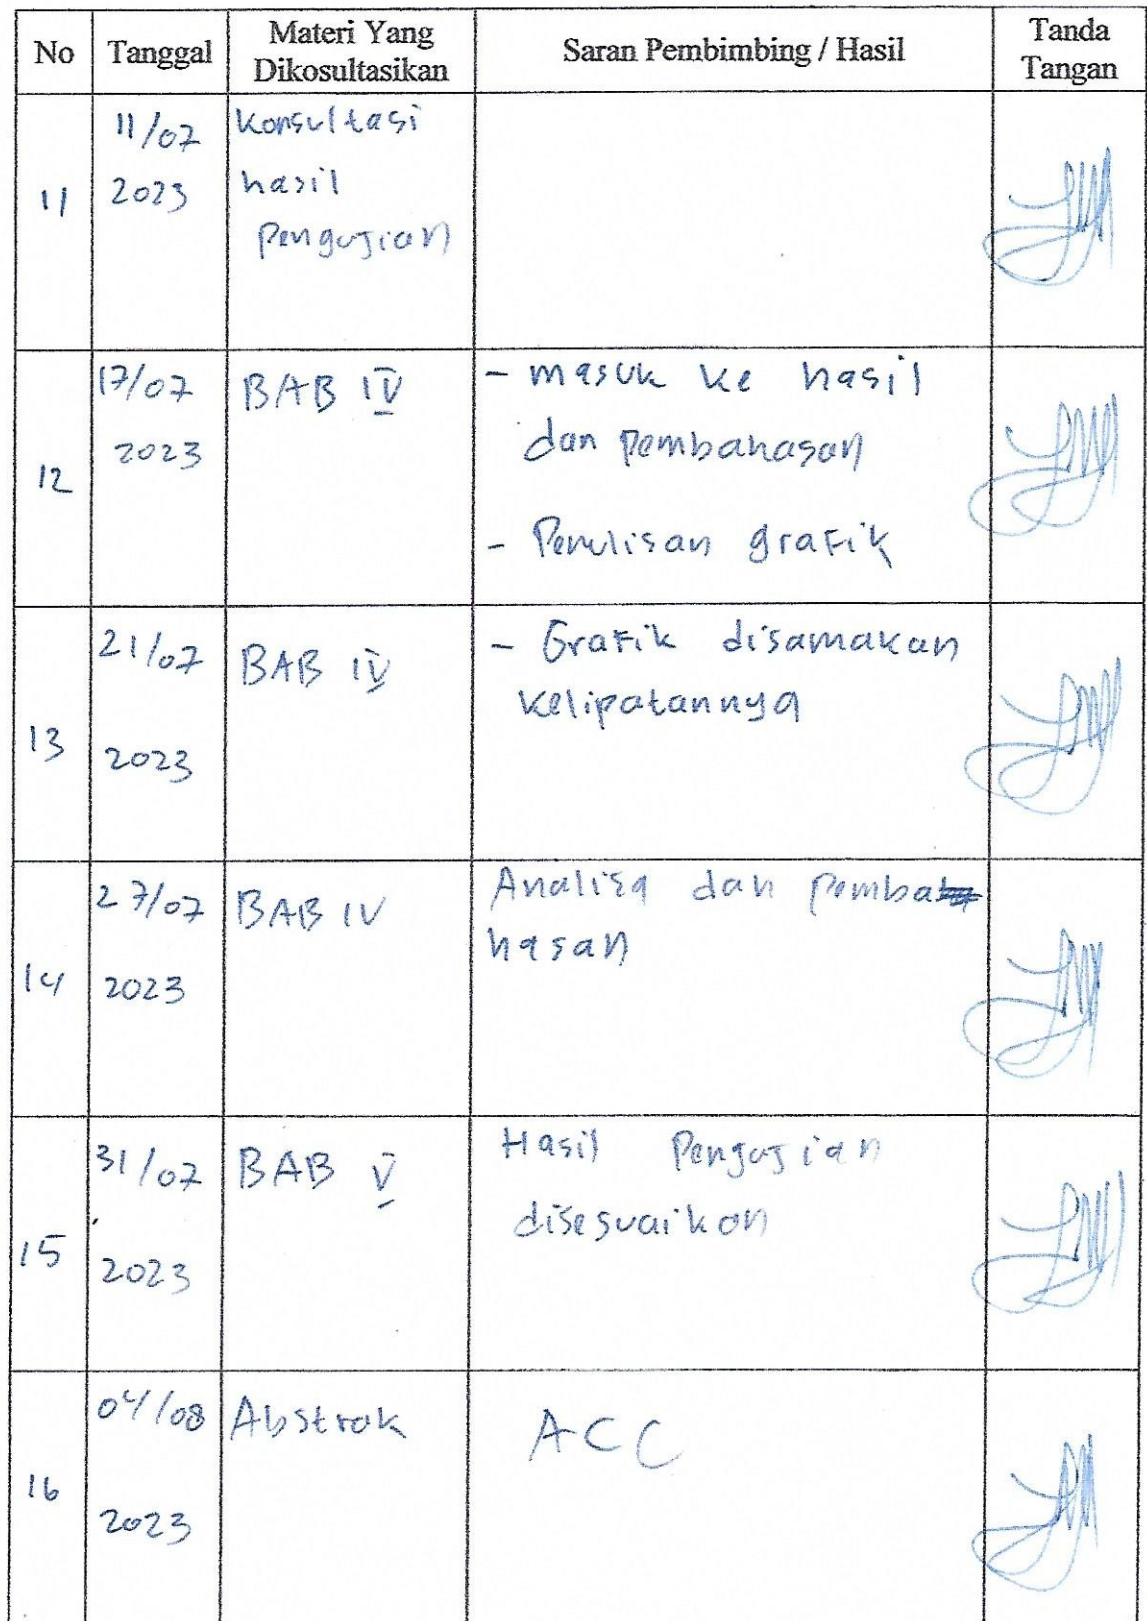 No Tanggal Materi Yang Dikosultasikan Saran Pembimbing / Hasil Tanda Tangan
11 11/07 2023 Konsultasi hasil Pengujian
12 17/07 2023 BAB IV - masuk ke hasil dan pembahasan
- Penulisan grafik
13 21/07 2023 BAB IV - Grafik disamakan kelipatannya
14 27/07 2023 BAB IV Analisa dan pemba hasan
15 31/07 2023 BAB V Hasil Pengujian disesuaikan
16 04/08 2023 Abstrak ACC